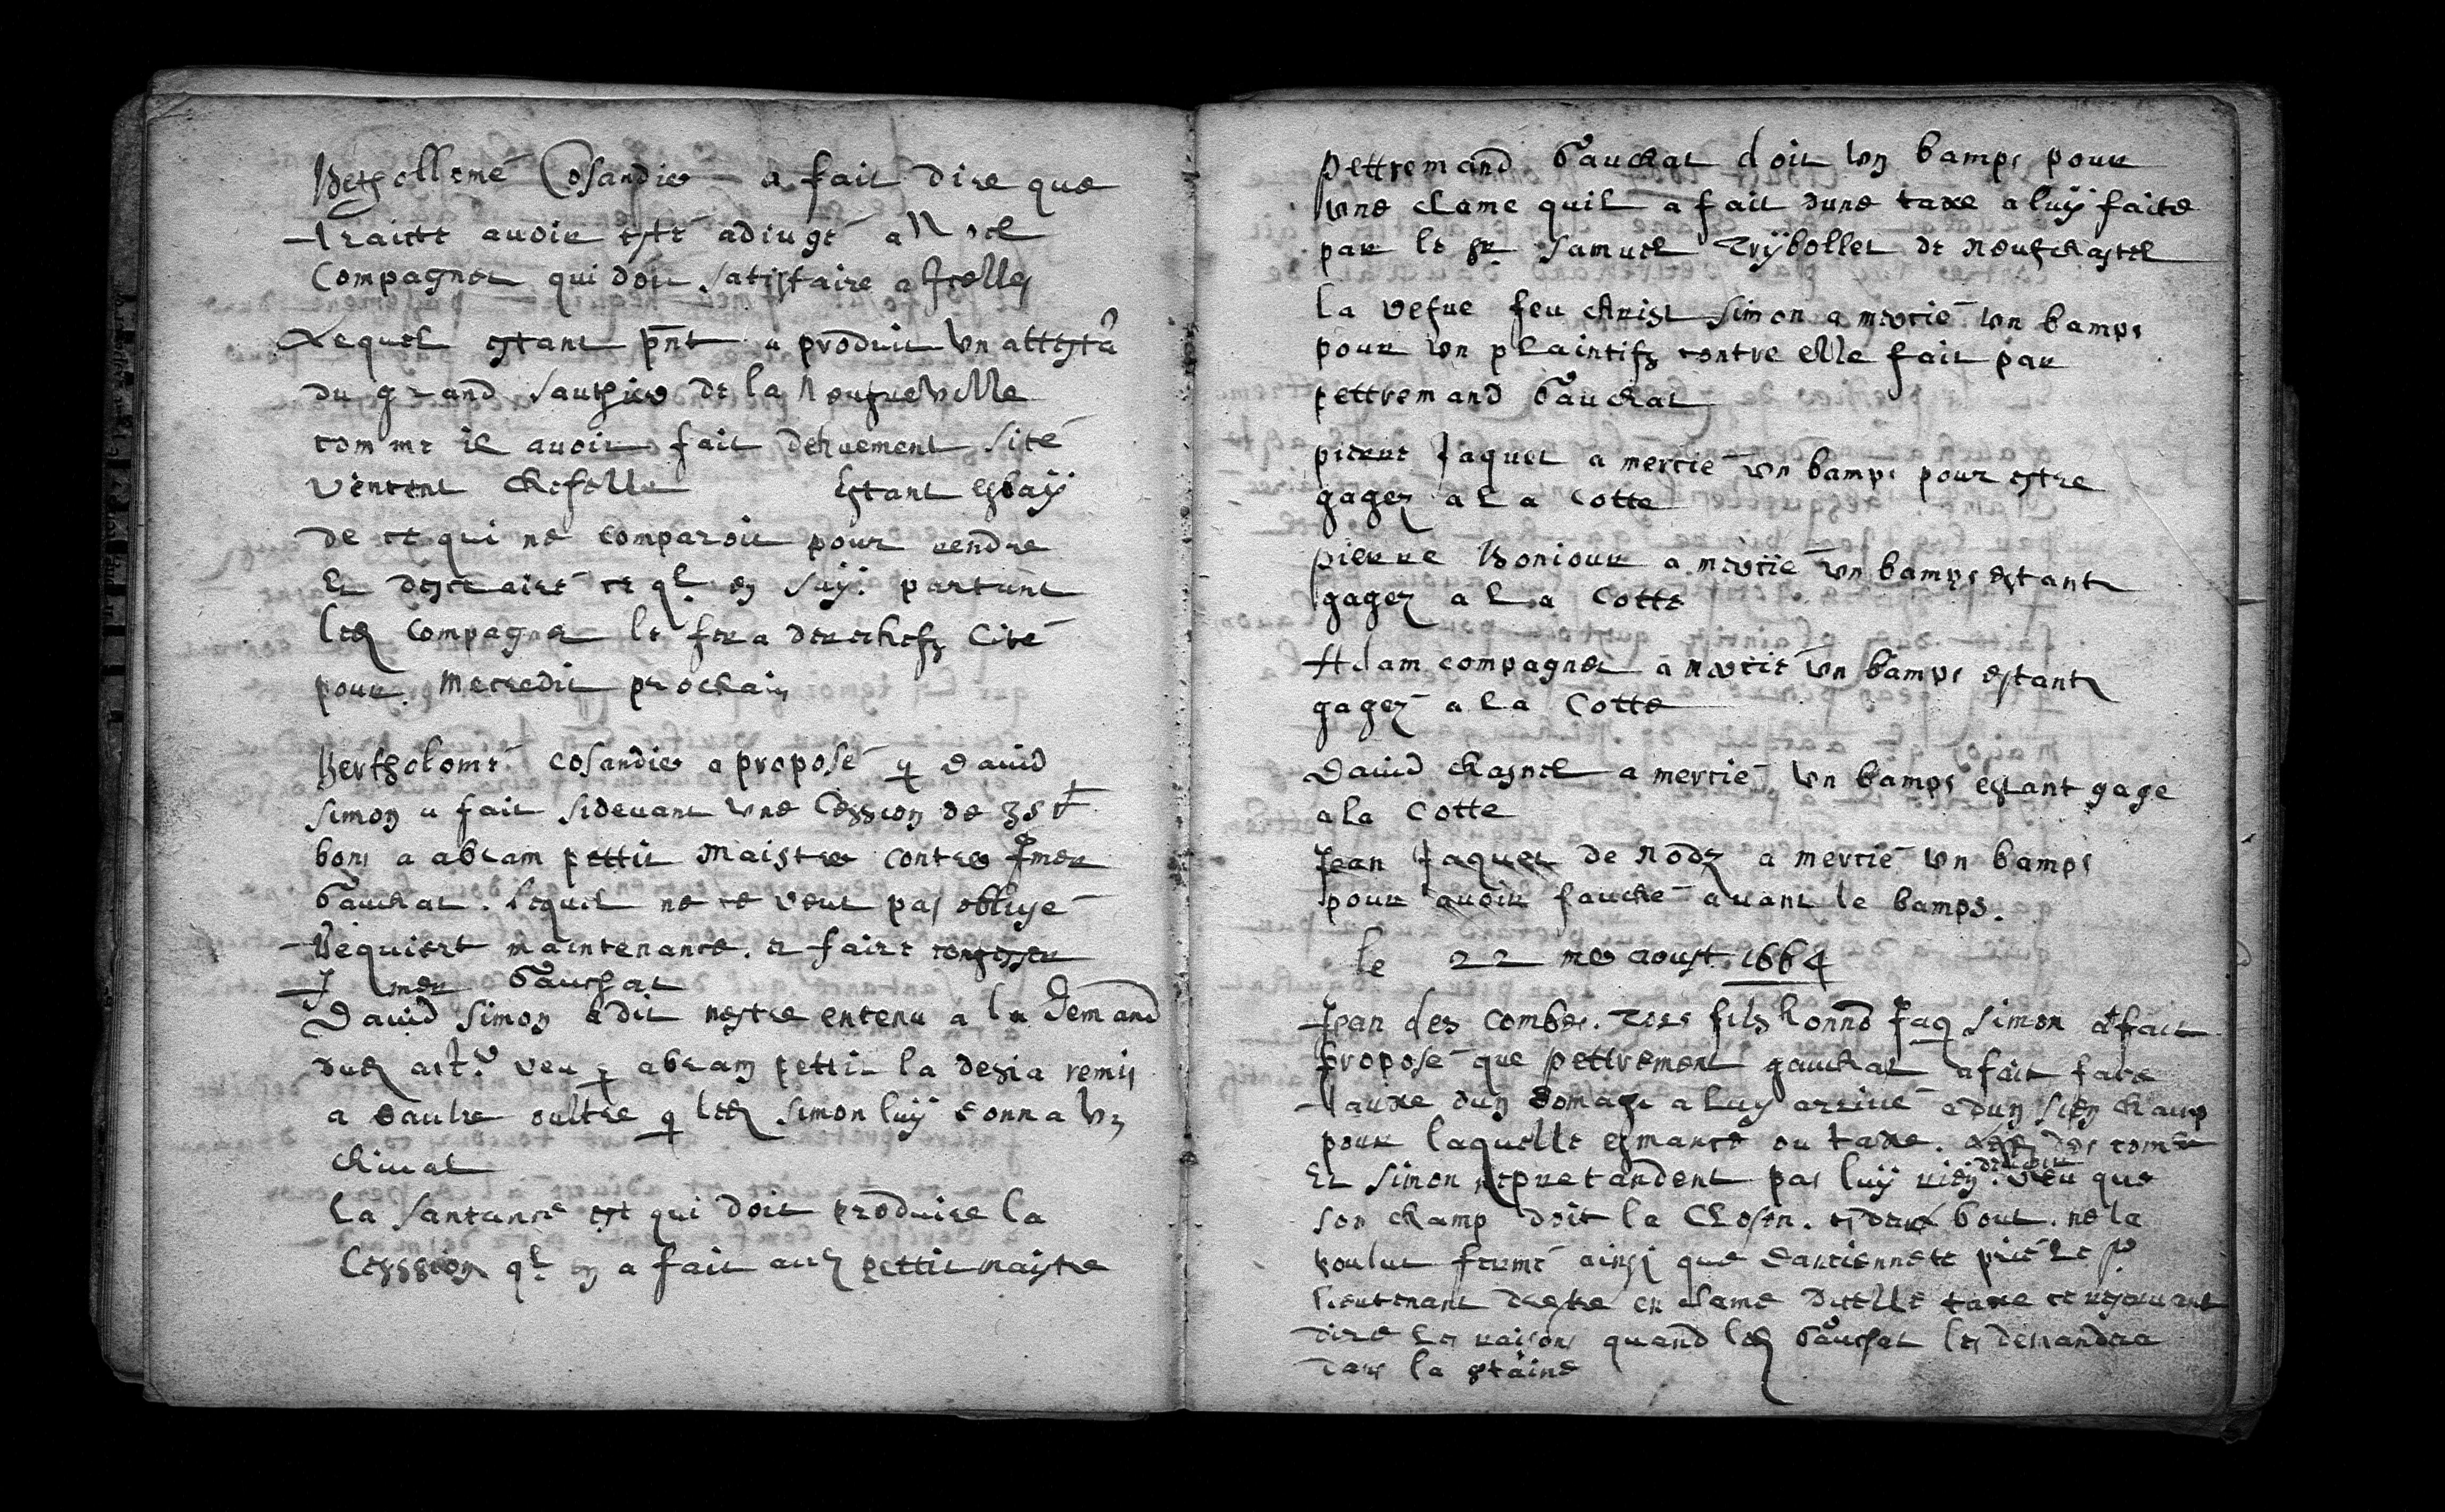 Bertollomé Cosandier a fait dire que
Traitte auoir esté adiugé a Noel
Compagnet qui doit satisfaire a Icelles
Lequel estant pnt a produit Un attesta
du grand Sauthier de la Neufueuille
comme il auoit fait dehuement sité
Vincent Estant esbay
de ce qui ne comparoit pour rendre
Et desclairé ce ql en suÿ. partant
led Compagnet le fera derechefz cité
pour. Mecredit prochain
Berthelomé Cosandier a proposé q Dauid
Simon a fait sideuant Vne Cession de 35 
bons a abram pettit Maistre contre Imer
Gauchat. lequel ne ce veut pas obligé
Requiert maintenance. et faire confesser
Imer Gauchat
Dauid Simon a dit nestre entenu a la demand
dud act.r veu q abram pettit la desia remis
a dautre oultre q led Simon luÿ donna Un
chiual
La Santance est qui doit produire la
Cession ql en a fait aud pettit maistre
pettremand Gauchat doit Un bamps pour
Vne clame quil a fait dune taxe a luÿ faite
par le Sr Samuel Trÿbollet de Neufchastel
la vefue feu Christ Simon a mercié Un bamps
pour Un plaintifz contre elle fait par
pettremand Gauchat
pierre Jaquet a mercié Un bamps pour estre
gagez a la Cotte
pierre Boniour a mercié Un bamps estant
gagez a la Cotte
Adam compagnet a mercié Un bamps estant
gagez a la Cotte
Dauid chasnel a mercié Un bamps estant gage
a la Cotte
Jean Jaquet de Nodz a mercié Un bamps
pour auoir fauché auant le bamps.
le 22 me aoust 1664
Jean des Combes. fils honno Jaq Simon a fait
proposé que pettremant gauchat a fait faire
taxe dun domage a luÿ arriué a dun sien champ
pour laquelle esmance ou taxe. des combe
Et Simon ne pretandent pas luÿ rien deuoir. Veu que
son champ doit la Closon. bout. ne la
voulut fermé ainsi que dancienneté Sr
lieutenant en clame dicelle taxe
dire les raisons quand led Gauchat les demandera
dans la